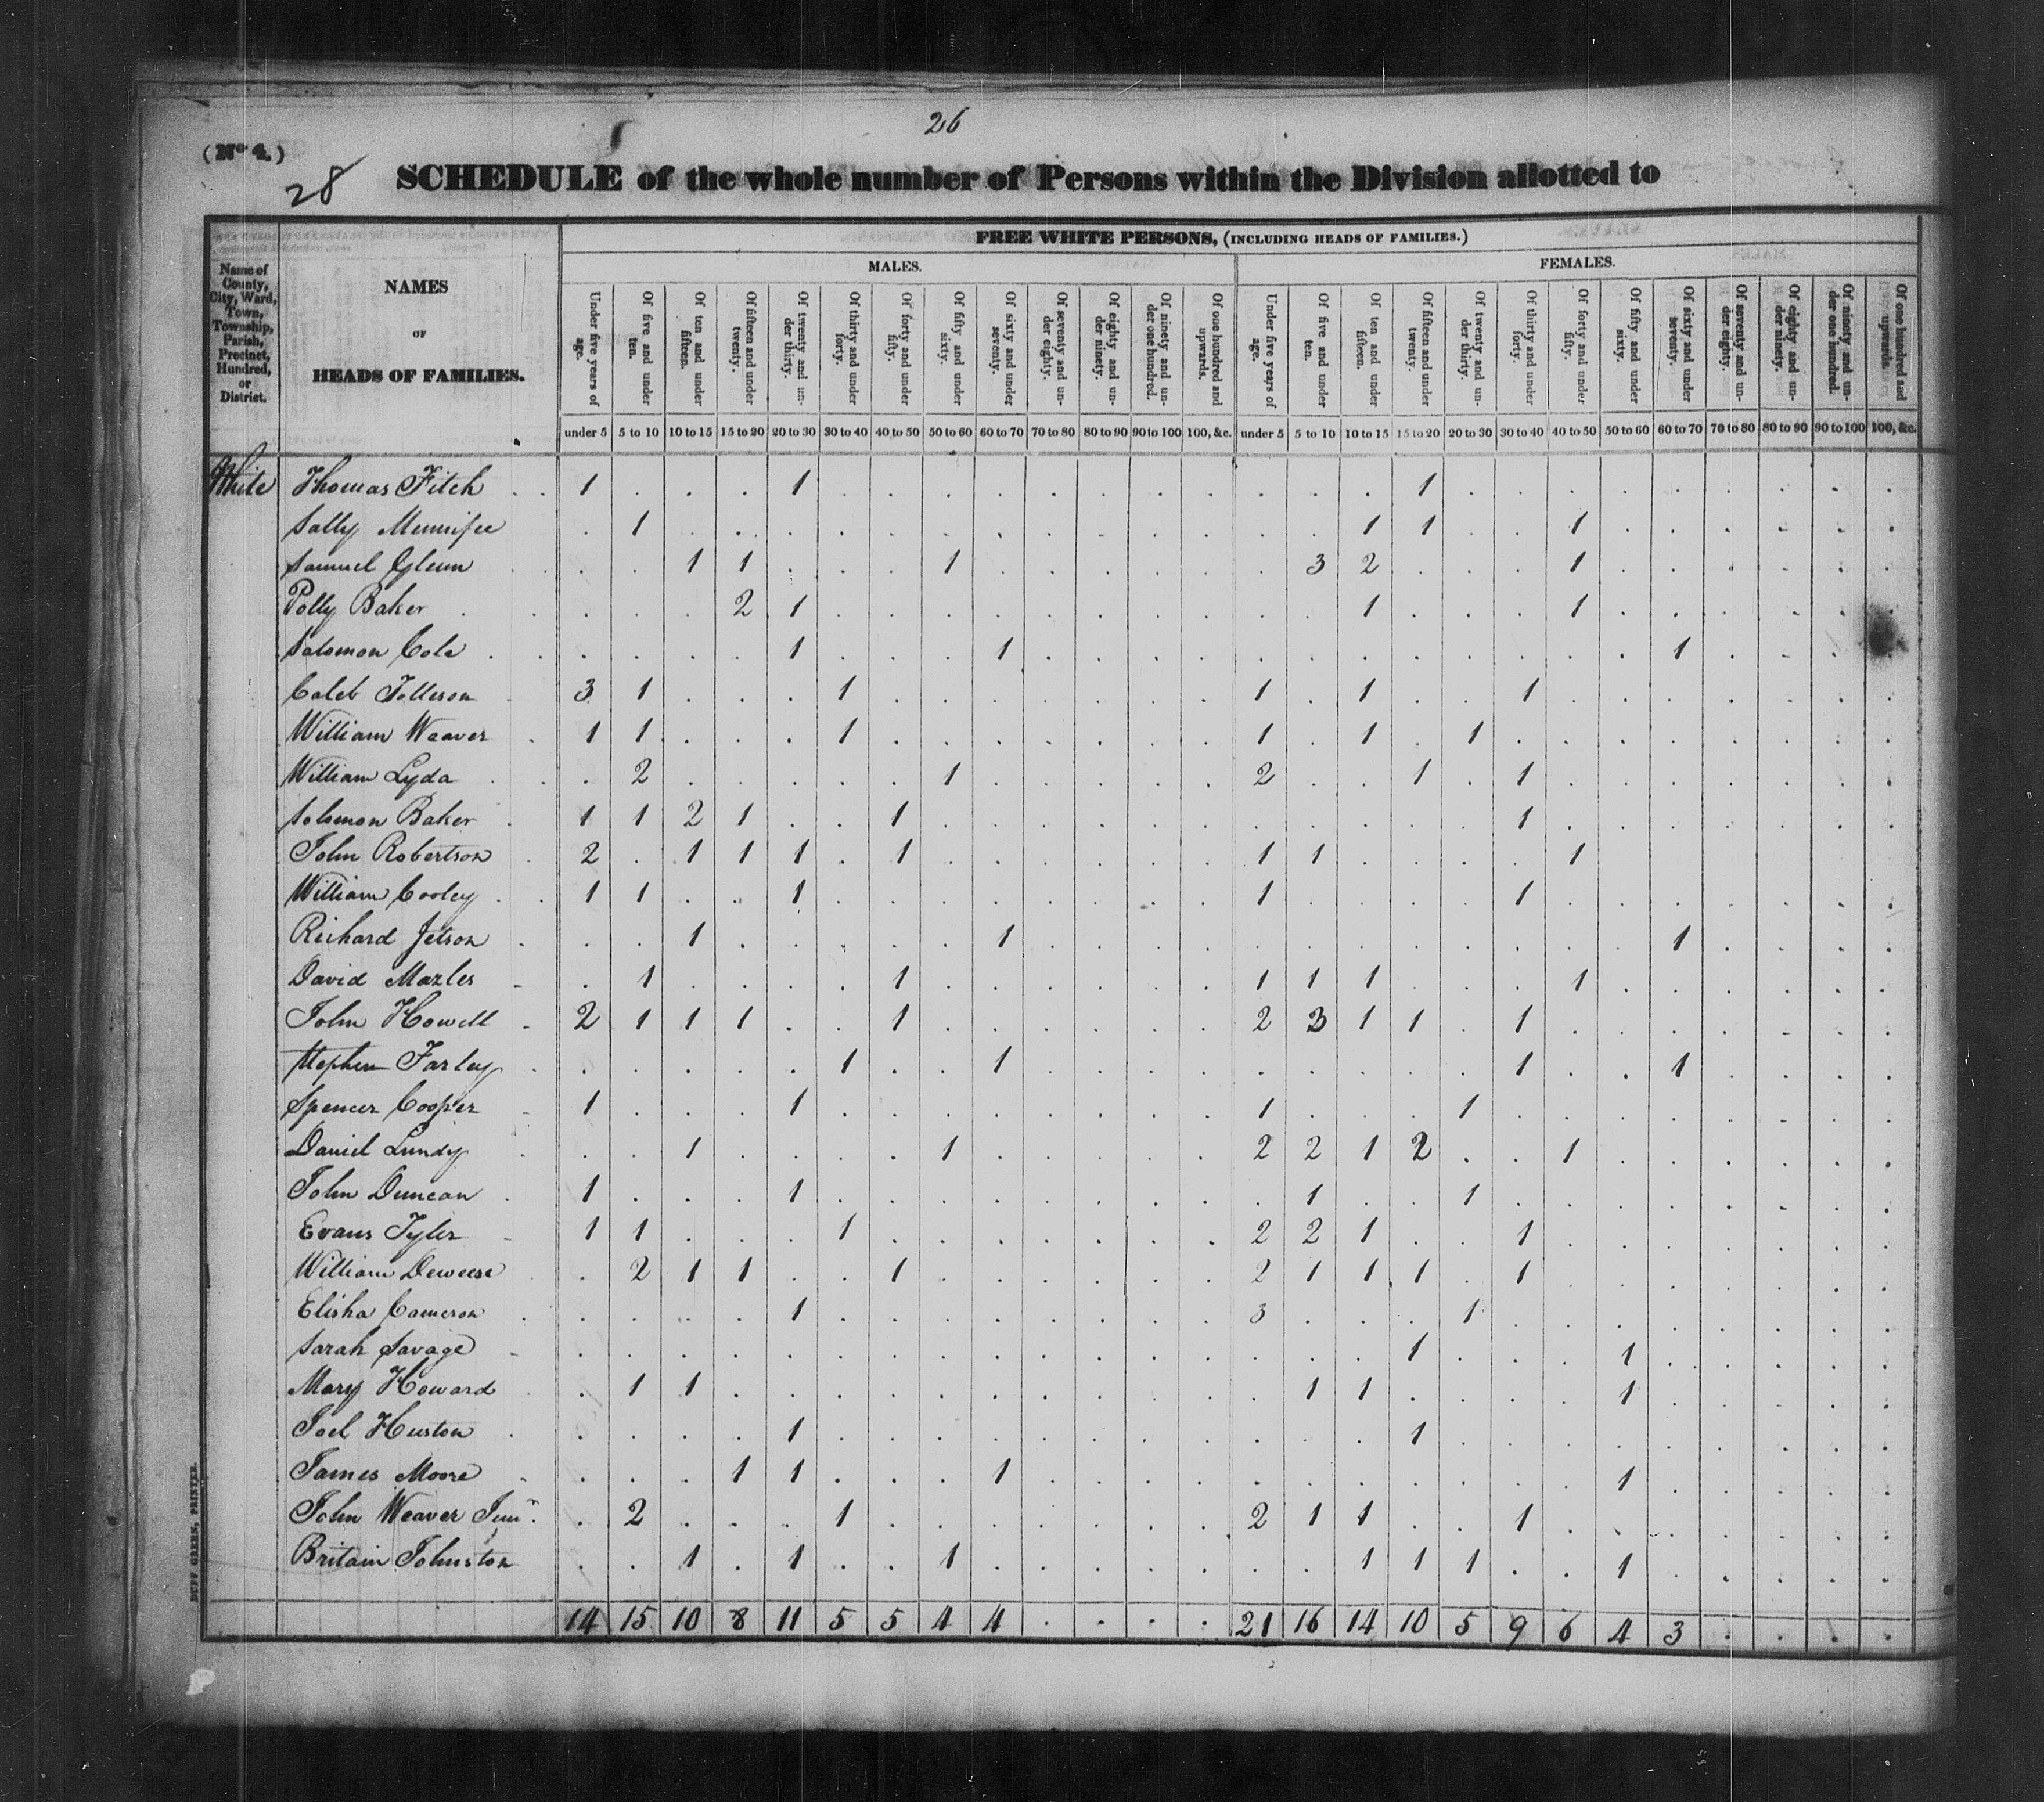 26
(No 4.)
28
SCHEDULE of the whole number of Persons within the Division allotted to
FREE WHITE PERSONS, (INCLUDING HEADS OF FAMILIES.)
MALES. FEMALES.
Name of County, City, Ward, Town, Township, Parish, Precinct, Hundred, or District.
NAMES
OF
HEADS OF FAMILIES.
Under five years of age. Of five and under ten. Of ten and under fifteen. Of fifteen and under twenty. Of twenty and under thirty. Of thirty and under forty. Of forty and under fifty. Of fifty and under sixty. Of sixty and under seventy. Of seventy and under eighty. Of eighty and under ninety. Of ninety and under one hundred. Of one hundred and upwards. Under five years of age. Of five and under ten. Of ten and under fifteen. Of fifteen and under twenty. Of twenty and under thirty. Of thirty and under forty. Of forty and under fifty. Of fifty and under sixty. Of sixty and under seventy. Of seventy and under eighty. Of eighty and under ninety. Of ninety and under one hundred. Of one hundred and upwards.
under 5 5 to 10 10 to 15 15 to 20 20 to 30 30 to 40 40 to 50 50 to 60 60 to 70 70 to 80 80 to 90 90 to 100 100, &c. under 5 5 to 10 10 to 15 15 to 20 20 to 30 30 to 40 40 to 50 50 to 60 60 to 70 70 to 80 80 to 90 90 to 100 100, &c.
White Thomas Fitch 1 . . . 1 . . . . . . . . . . . 1 . . . . . . . . .
Sally Mennifee . 1 . . . . . . . . . . . . . 1 1 . . 1 . . . . . .
Samuel Glenn . . 1 1 . . . 1 . . . . . . 3 2 . . . 1 . . . . . .
Polly Baker . . . 2 1 . . . . . . . . . . 1 . . . 1 . . . . . .
Solomon Cole . . . . 1 . . . 1 . . . . . . . . . . . . 1 . . . .
Caleb Tolleson 3 1 . . . 1 . . . . . . . 1 . 1 . . 1 . . . . . . .
William Weaver 1 1 . . . 1 . . . . . . . 1 . 1 . 1 . . . . . . . .
William Lyda . 2 . . . . . 1 . . . . . 2 . . 1 . 1 . . . . . . .
Solomon Baker 1 1 2 1 . . 1 . . . . . . . . . . . 1 . . . . . . .
John Robertson 2 . 1 1 1 . 1 . . . . . . 1 1 . . . . 1 . . . . . .
William Cooley 1 1 . . 1 . . . . . . . . 1 . . . . 1 . . . . . . .
Richard Jetson . . 1 . . . . . 1 . . . . . . . . . . . . 1 . . . .
David Mazles . 1 . . . . 1 . . . . . . 1 1 1 . . . 1 . . . . . .
John Howell 2 1 1 1 . . 1 . . . . . . 2 3 1 1 . 1 . . . . . . .
Stephen Farley . . . . . 1 . . 1 . . . . . . . . . 1 . . 1 . . . .
Spencer Cooper 1 . . . 1 . . . . . . . . 1 . . . 1 . . . . . . . .
Daniel Lundy . . 1 . . . . 1 . . . . . 2 2 1 2 . . 1 . . . . . .
John Duncan 1 . . . 1 . . . . . . . . . 1 . . 1 . . . . . . . .
Evans Tyler 1 1 . . . 1 . . . . . . . 2 2 1 . . 1 . . . . . . .
William Deweese . 2 1 1 . . 1 . . . . . . 2 1 1 1 . 1 . . . . . . .
Elisha Cameron . . . . 1 . . . . . . . . 3 . . . 1 . . . . . . . .
Sarah Savage . . . . . . . . . . . . . . . . 1 . . . 1 . . . . .
Mary Howard . 1 1 . . . . . . . . . . . 1 1 . . . . 1 . . . . .
Joel Huston . . . . 1 . . . . . . . . . . . 1 . . . . . . . . .
James Moore . . . 1 1 . . . 1 . . . . . . . . . . . 1 . . . . .
John Weaver Junr. . 2 . . . 1 . . . . . . . 2 1 1 . . 1 . . . . . . .
Britain Johnston . . 1 . 1 . . 1 . . . . . . . 1 1 1 . . 1 . . . . .
14 15 10 8 11 5 5 4 4 . . . . 21 16 14 10 5 9 6 4 3 . . . .
DUFF GREEN, PRINTER.